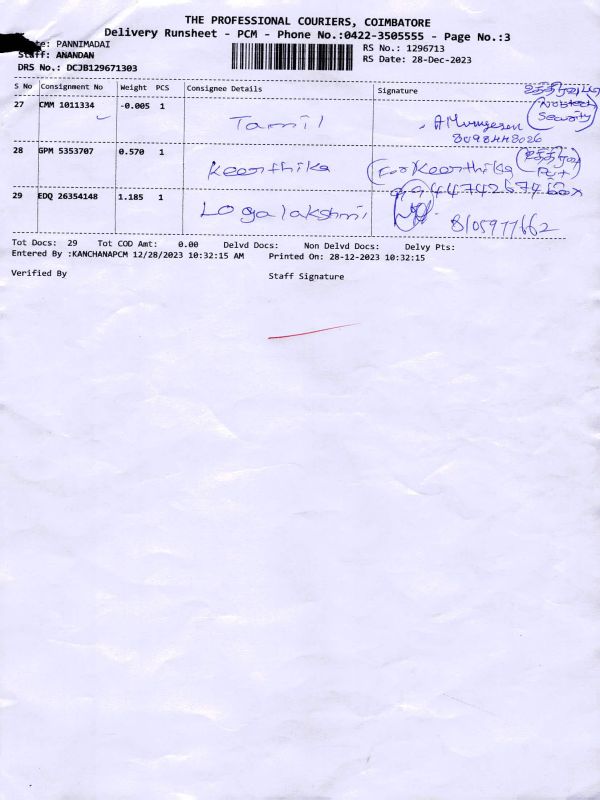 THE PROFESSIONAL COURIERS, COIMBATORE
Delivery Runsheet - PCM - Phone No.:0422-3505555 - Page No.:3
PANNIMADAI
RS No.: 1296713
Staff: ANANDAN
RS Date: 28-Dec-2023
DRS No.: DCJB129671303
S No Consignment No Weight PCS Consignee Details Signature
27 CMM 1011334 -0.005 1 Tamil
Security)
8098448026
28 GPM 5353707 0.570 1 Keerthika (For Keerthika
29 EDQ 26354148 1.185 1 Logalakshmi 8105977662
Tot Docs: 29 Tot COD Amt: 0.00 Delvd Docs: Non Delvd Docs: Delvy Pts:
Entered By :KANCHANAPCM 12/28/2023 10:32:15 AM Printed On: 28-12-2023 10:32:15
Verified By Staff Signature